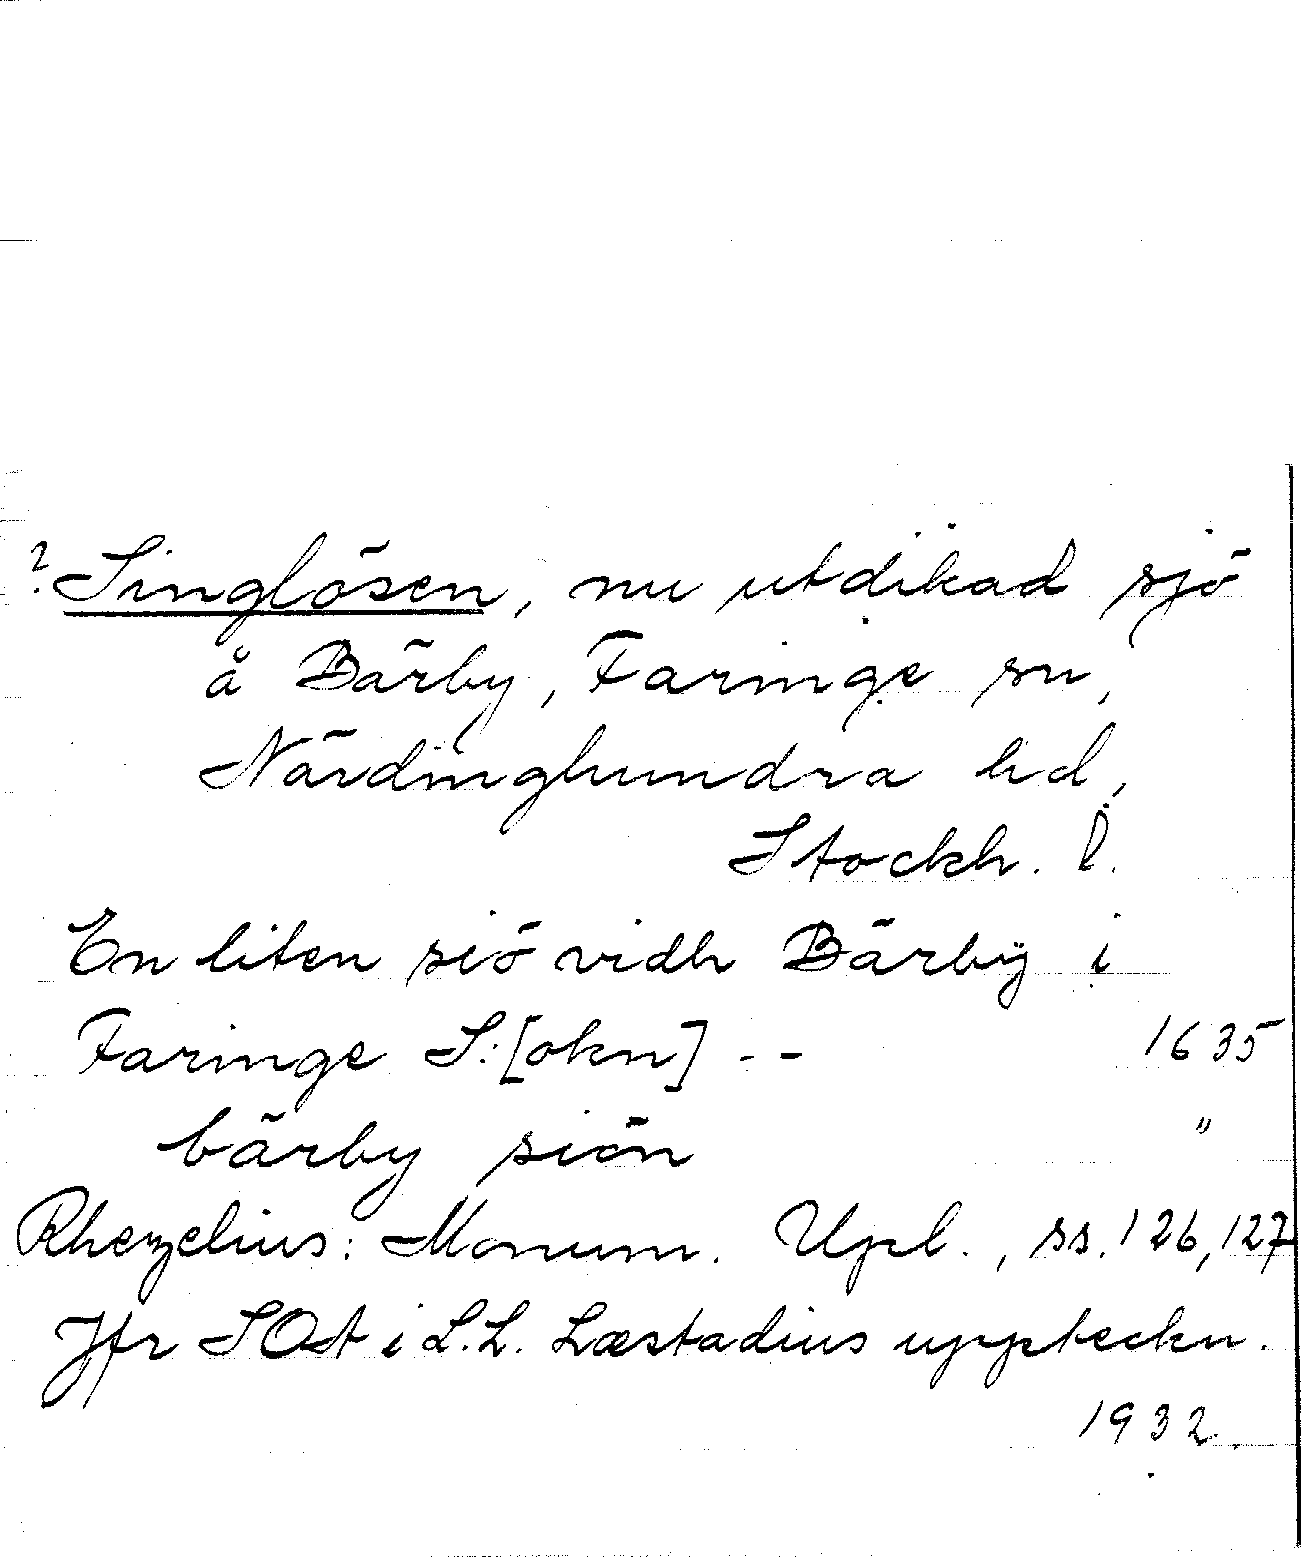 ? Singlösen, nu utdikad sjö
å Bärby, Faringe sn,
Närdinghundra hd,
Stockh. l.
En liten siö vidh Bärbÿ i
Faringe S:[okn] -- 1635
bärby siön "
Rhezelius: Monum. Upl., ss. 126, 127
Jfr SOSt i L.L. Læstadius uppteckn.
1932.